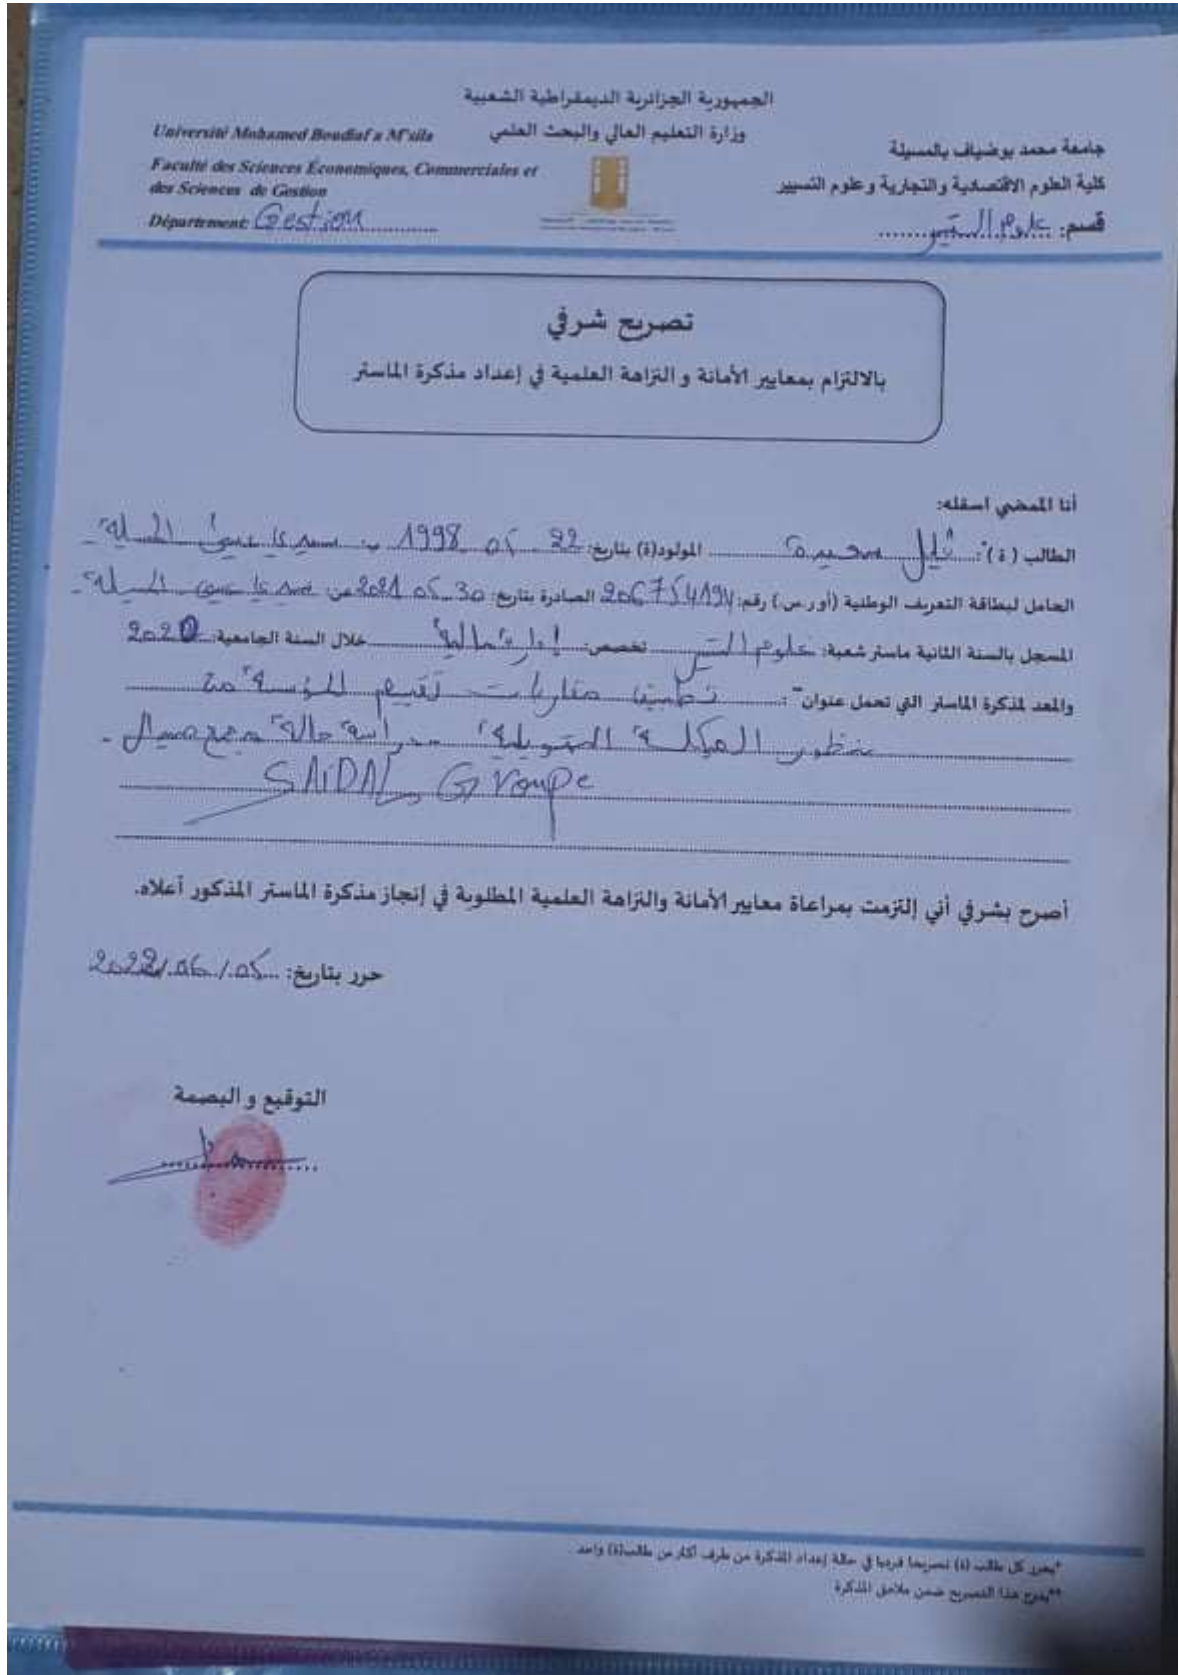 الجمهورية الجزائرية الديمقراطية الشعبية
وزارة التعليم العالي والبحث العلمي
جامعة محمد بوضياف بالمسيلة
كلية العلوم الاقتصادية والتجارية وعلوم التسيير
قسم: علوم التسيير
Université Mohamed Boudiaf a M'sila
Faculté des Sciences Économiques, Commerciales et
des Sciences de Gestion
Département: Gestion
تصريح شرفي
بالالتزام بمعايير الأمانة و النزاهة العلمية في إعداد مذكرة الماستر
أنا الممضي اسفله:
الطالب (ة): المولود(ة) بتاريخ: 22 05 1998 ب سيدي عيسى المسيلة
الحامل لبطاقة التعريف الوطنية (أو ر.س) رقم: 206754194 الصادرة بتاريخ: 30 05 2021 من سيدي عيسى المسيلة
المسجل بالسنة الثانية ماستر شعبة: علوم التسيير تخصص: إدارة مالية خلال السنة الجامعية: 2020
والمعد لمذكرة الماستر التي تحمل عنوان": تطبيق مقاربات تقييم المؤسسة من
منظور الهيكلة التمويلية دراسة حالة مجمع صيدال
SAIDAL Groupe
أصرح بشرفي أني إلتزمت بمراعاة معايير الأمانة والنزاهة العلمية المطلوبة في إنجاز مذكرة الماستر المذكور أعلاه.
حرر بتاريخ: 2022/06/05
التوقيع و البصمة
*يحرر كل طالب (ة) تصريحا فرديا في حالة إعداد المذكرة من طرف أكثر من طالب(ة) واحد
**يدرج هذا التصريح ضمن ملاحق المذكرة